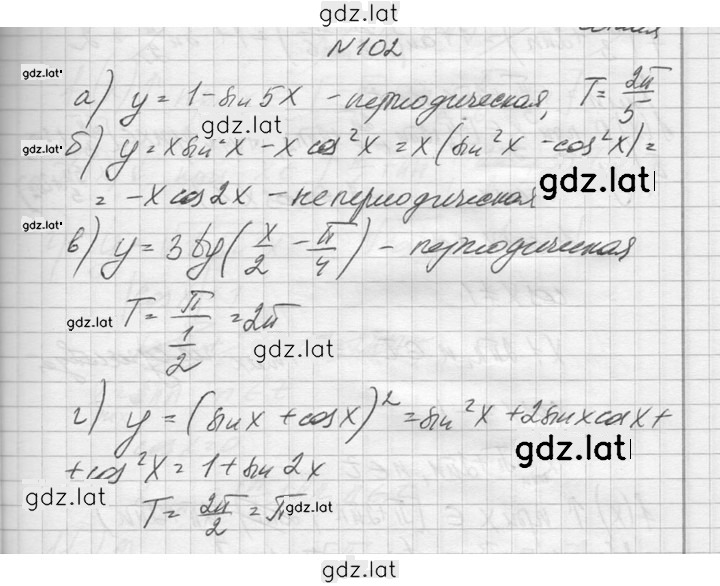 gdz.lat
N 102
gdz.lat
а) y = 1 - sin 5x - периодическая, T = 2π/5
gdz.lat
gdz.lat
б) y = x sin²x - x cos²x = x(sin²x - cos²x) =
gdz.lat
= -x cos 2x - непериодическая
gdz.lat
в) y = 3 tg(x/2 - π/4) - периодическая
gdz.lat
T = π/(1/2) = 2π
gdz.lat
г) y = (sin x + cos x)² = sin²x + 2 sin x cos x +
gdz.lat
+ cos²x = 1 + sin 2x
gdz.lat
T = 2π/2 = π
gdz.lat
gdz.lat